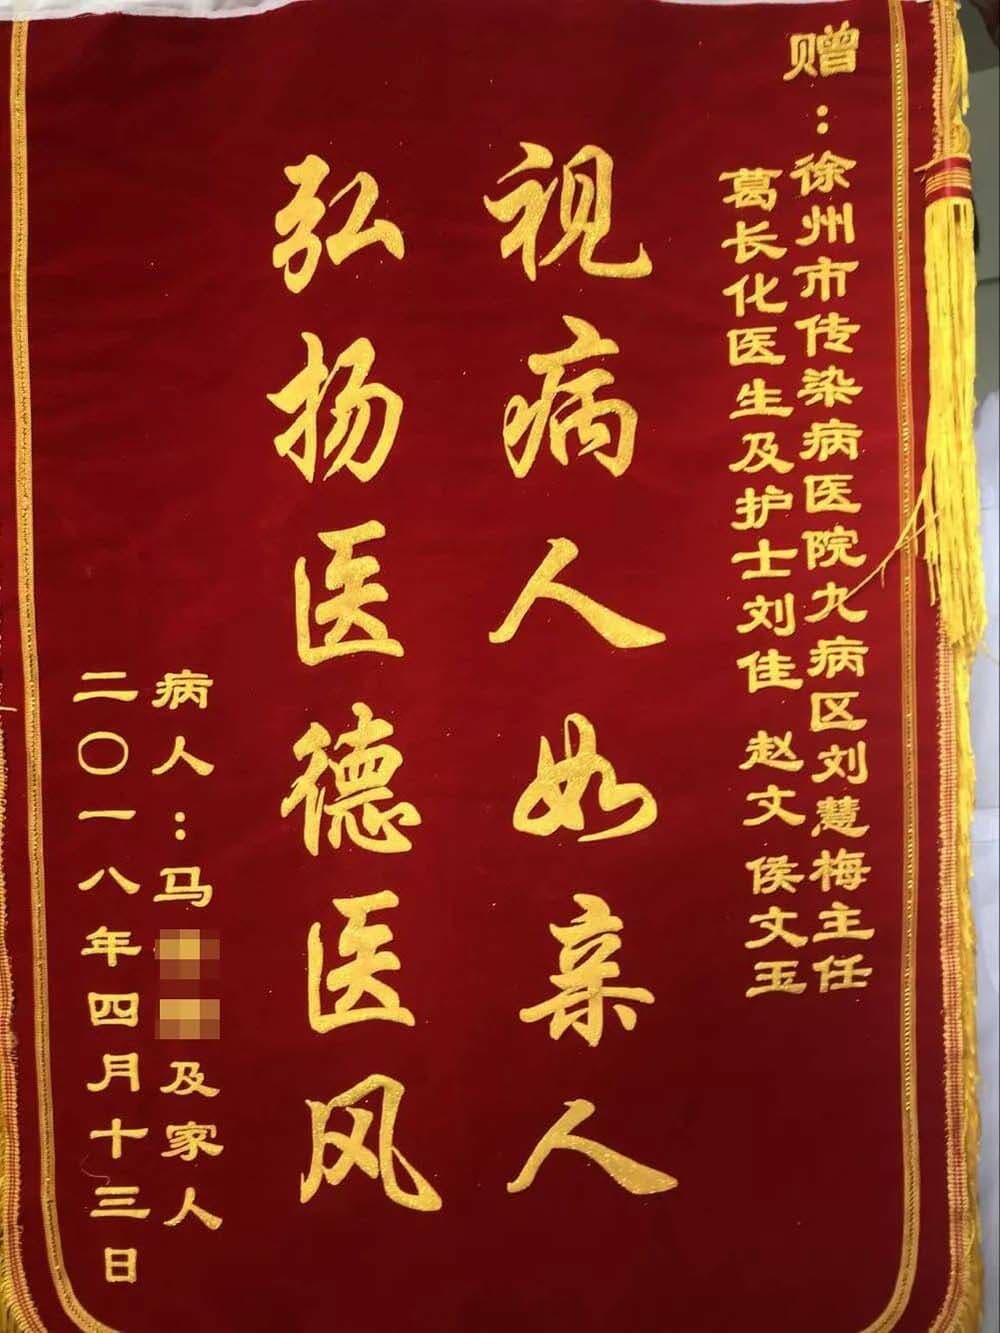 赠：徐州市传染病医院九病区刘慧梅主任
葛长化医生及护士刘佳 赵文 侯文玉
视病人如亲人
弘扬医德医风
病人：马及家人
二〇一八年四月十三日